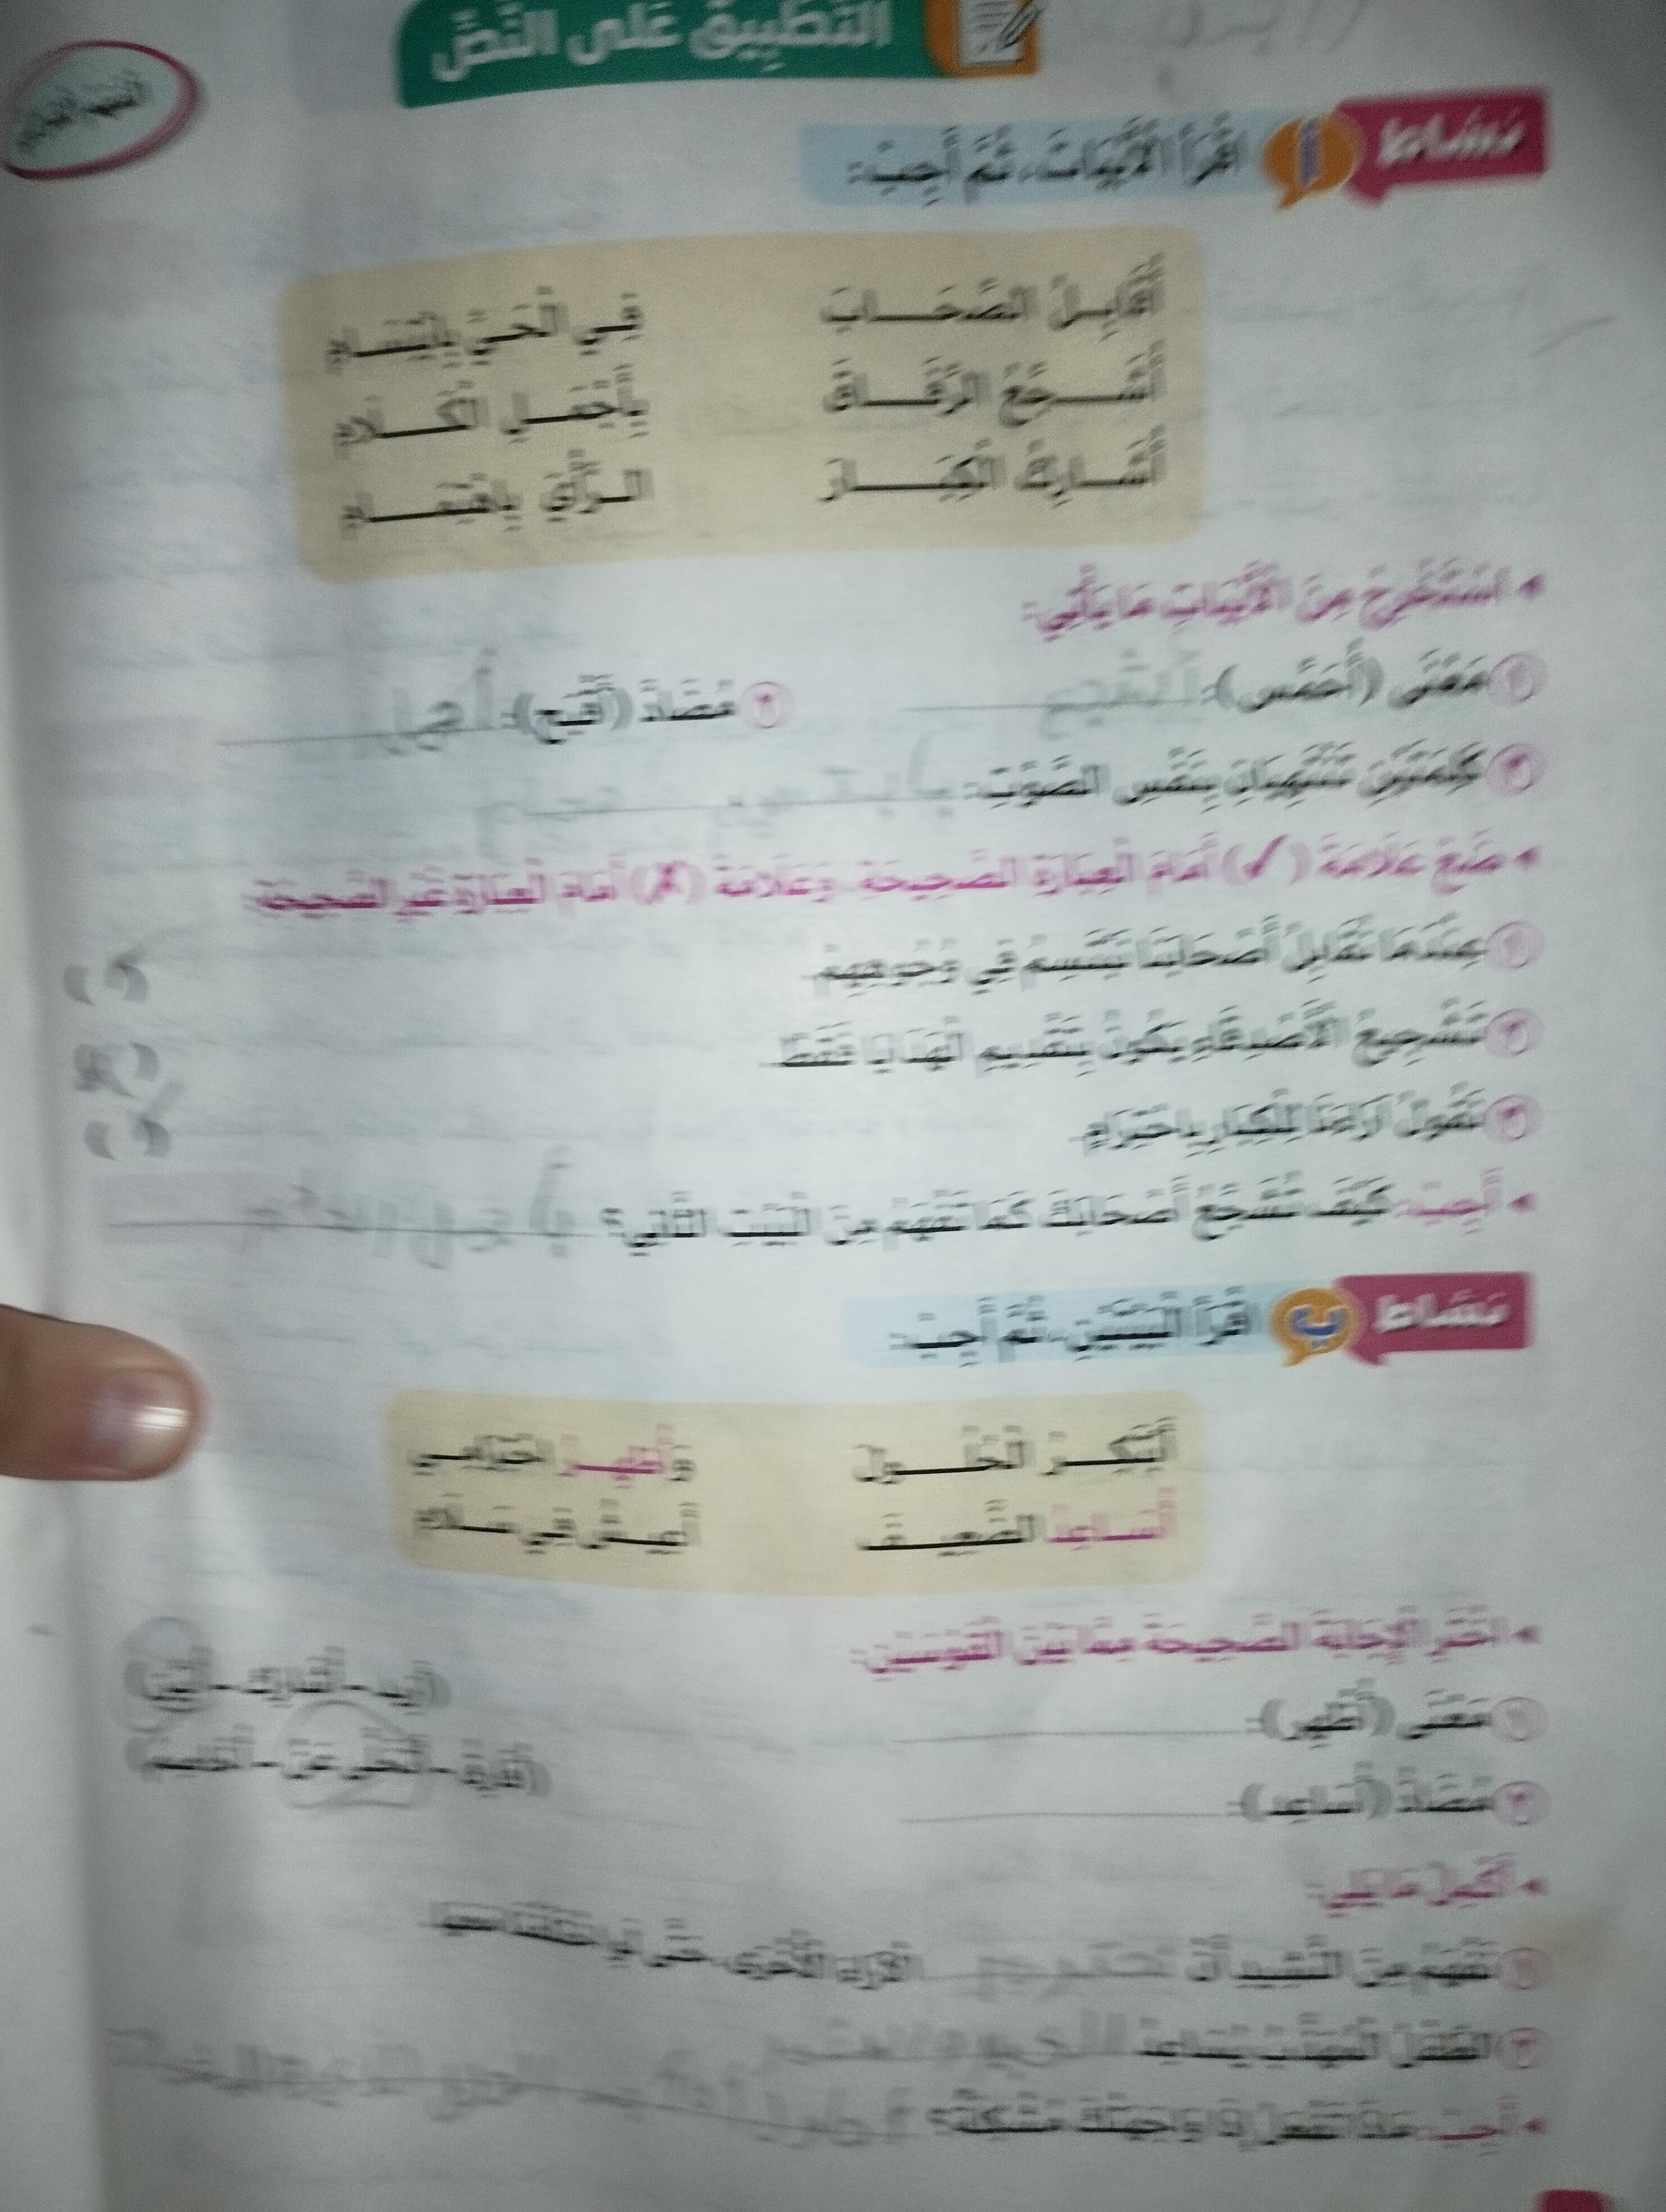 التَّطْبِيقُ عَلَى النَّصِّ
نَشَاط أ اقْرَأِ الْأَبْيَاتَ، ثُمَّ أَجِبْ:
أُقَابِلُ الصِّحَابَ فِي الْحَيِّ بِابْتِسَامِ
أُشَجِّعُ الرِّفَاقَ بِأَجْمَلِ الْكَلَامِ
أُشَارِكُ الْكِبَارَ الرَّأْيَ بِاهْتِمَامِ
اسْتَخْرِجْ مِنَ الْأَبْيَاتِ مَا يَأْتِي:
١ مَعْنَى (أُحَمِّس): أشجع
٢ مُضَادَّ (أَقْبَح): أجمل
٣ كَلِمَتَيْنِ تَنْتَهِيَانِ بِنَفْسِ الصَّوْتِ:
ضَعْ عَلَامَةَ (✓) أَمَامَ الْعِبَارَةِ الصَّحِيحَةِ، وَعَلَامَةَ (✗) أَمَامَ الْعِبَارَةِ غَيْرِ الصَّحِيحَةِ:
١ عِنْدَمَا نُقَابِلُ أَصْحَابَنَا نَبْتَسِمُ فِي وُجُوهِهِمْ.
٢ تَشْجِيعُ الْأَصْدِقَاءِ يَكُونُ بِتَقْدِيمِ الْهَدَايَا فَقَطْ.
٣ نَقُولُ آرَاءَنَا لِلْكِبَارِ بِاحْتِرَامٍ.
أَجِبْ: كَيْفَ تُشَجِّعُ أَصْحَابَكَ كَمَا تَفْهَمُ مِنَ الْبَيْتِ الثَّانِي؟ بأجمل الكلام
نَشَاط ب اقْرَأِ الْبَيْتَيْنِ، ثُمَّ أَجِبْ:
أَبْتَكِرُ الْحُلُولَ وَأُظْهِرُ احْتِرَامِي
أُسَاعِدُ الضَّعِيفَ أَعِيشُ فِي سَلَامِ
اخْتَرِ الْإِجَابَةَ الصَّحِيحَةَ مِمَّا بَيْنَ الْقَوْسَيْنِ:
١ مَعْنَى (أُظْهِر): (أُرِيد - أُشَارِك - أُبَيِّن)
٢ مُضَادَّ (أُسَاعِد): (أُفَارِق - أَتَخَلَّى عَنْ -
أَكْمِلْ مَا يَلِي:
١ نَفْهَمُ مِنَ النَّشِيدِ أَنْ نحترم الْآرَاءَ الْأُخْرَى، حَتَّى لَوِ اخْتَلَفْنَا مَعَهَا.
٢ الطِّفْلُ الْمُهَذَّبُ يُسَاعِدُ
أَجِبْ: مَاذَا تَفْعَلُ إِذَا وَاجَهَتْكَ مُشْكِلَةٌ؟